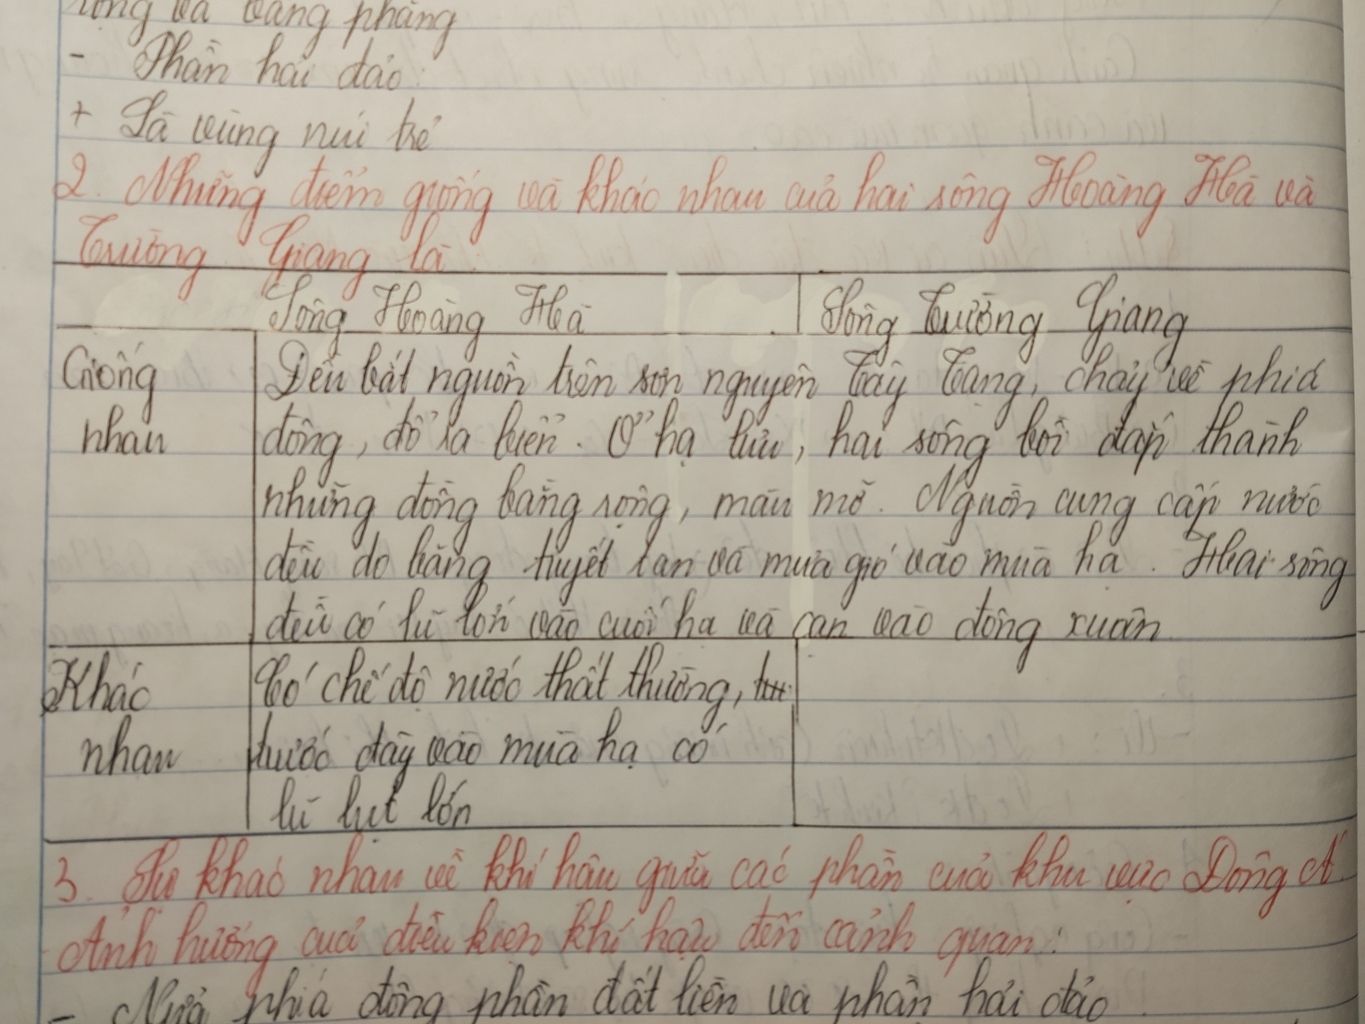 rộng và bằng phẳng
- Phần hải đảo:
+ Là vùng núi trẻ
2. Những điểm giống và khác nhau của hai sông Hoàng Hà và
Trường Giang là:
Sông Hoàng Hà
Sông Trường Giang
Giống
nhau
Đều bắt nguồn trên sơn nguyên Tây Tạng, chảy về phía
đông, đổ ra biển. Ở hạ lưu, hai sông bồi đắp thành
những đồng bằng rộng, màu mỡ. Nguồn cung cấp nước
đều do băng tuyết tan và mưa gió vào mùa hạ. Hai sông
đều có lũ lớn vào cuối hạ và cạn vào đông xuân
Khác
nhau
Có chế độ nước thất thường,
trước đây vào mùa hạ có
lũ lụt lớn
3. Sự khác nhau về khí hậu giữa các phần của khu vực Đông Á.
Ảnh hưởng của điều kiện khí hậu đến cảnh quan:
- Nửa phía đông phần đất liền và phần hải đảo